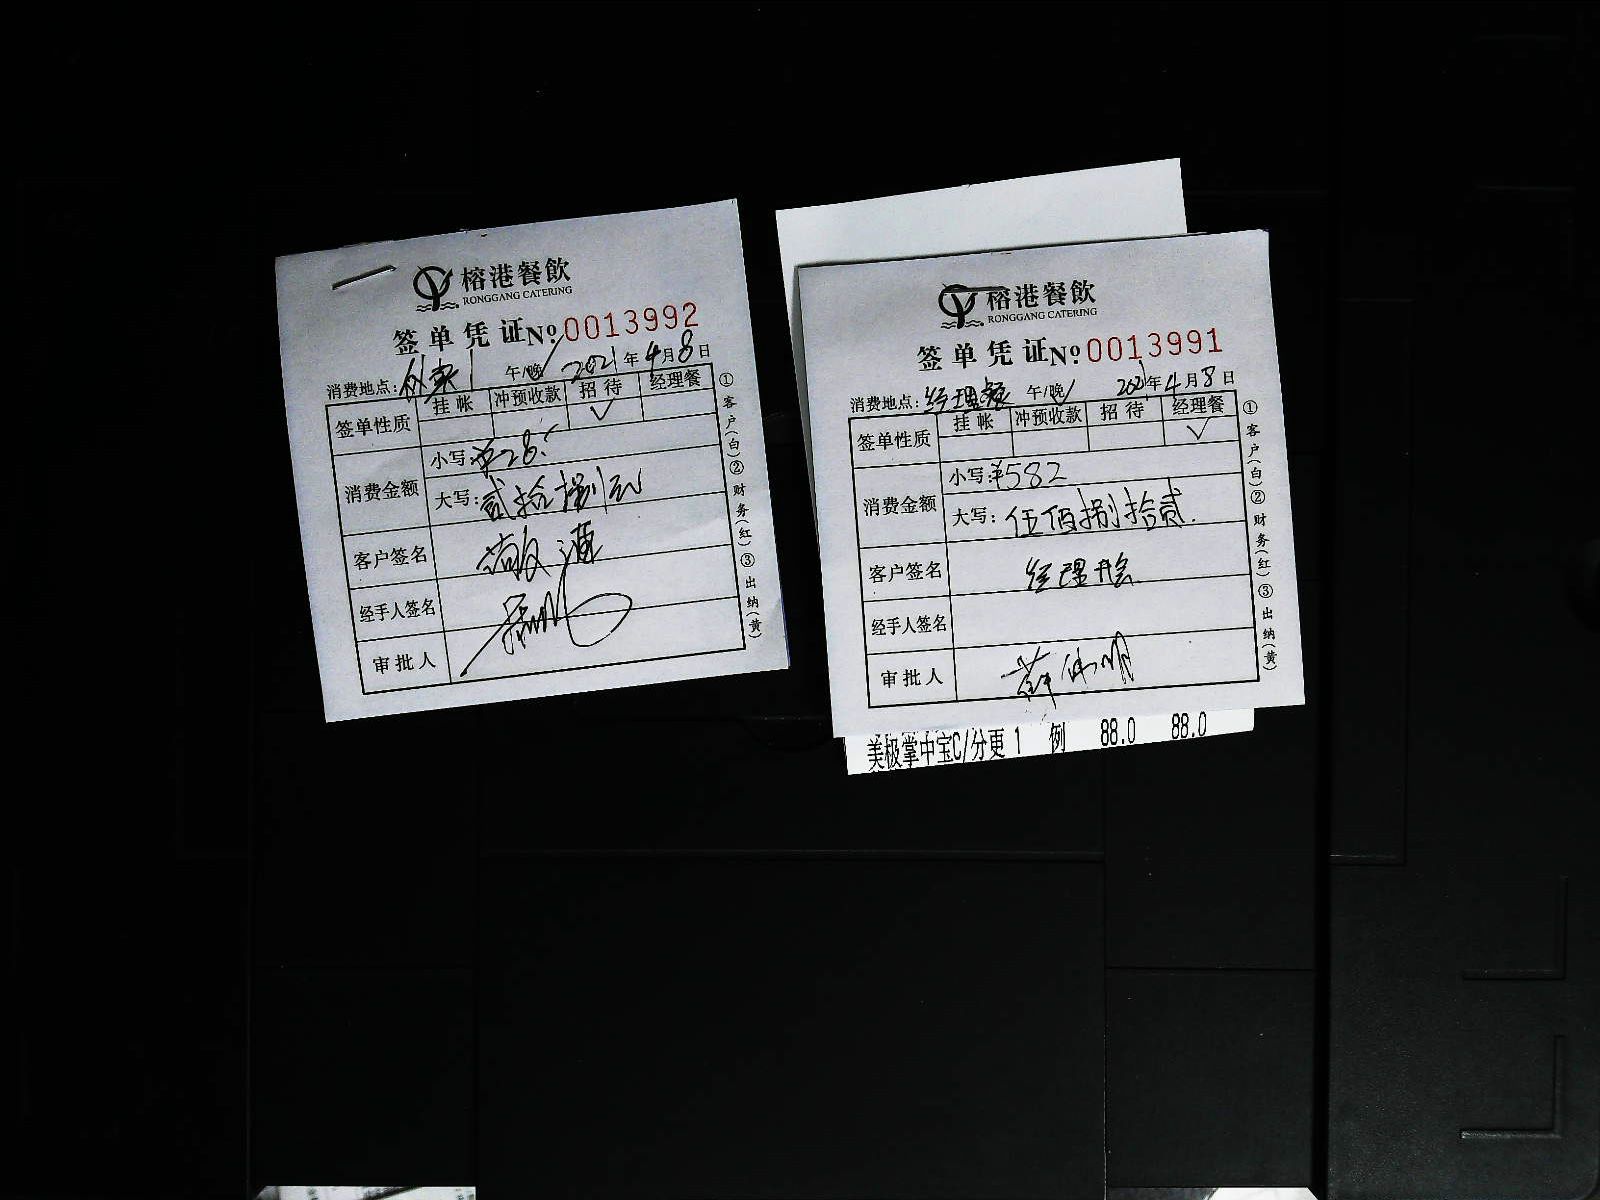 榕港餐飲
RONGGANG CATERING
签单凭证 No 0013992
消费地点: 午/晚 2021年4月8日
签单性质 挂帐 冲预收款 招待 经理餐
✓
消费金额 小写: ¥28
大写: 贰拾捌元
客户签名
经手人签名
审批人
①客户(白)②财务(红)③出纳(黄)
榕港餐飲
RONGGANG CATERING
签单凭证 No 0013991
消费地点: 经理餐 午/晚 2021年4月8日
签单性质 挂帐 冲预收款 招待 经理餐
✓
消费金额 小写: ¥582
大写: 伍佰捌拾贰
客户签名 经理
经手人签名
审批人 薛
①客户(白)②财务(红)③出纳(黄)
美极掌中宝C/分更 1 例 88.0 88.0